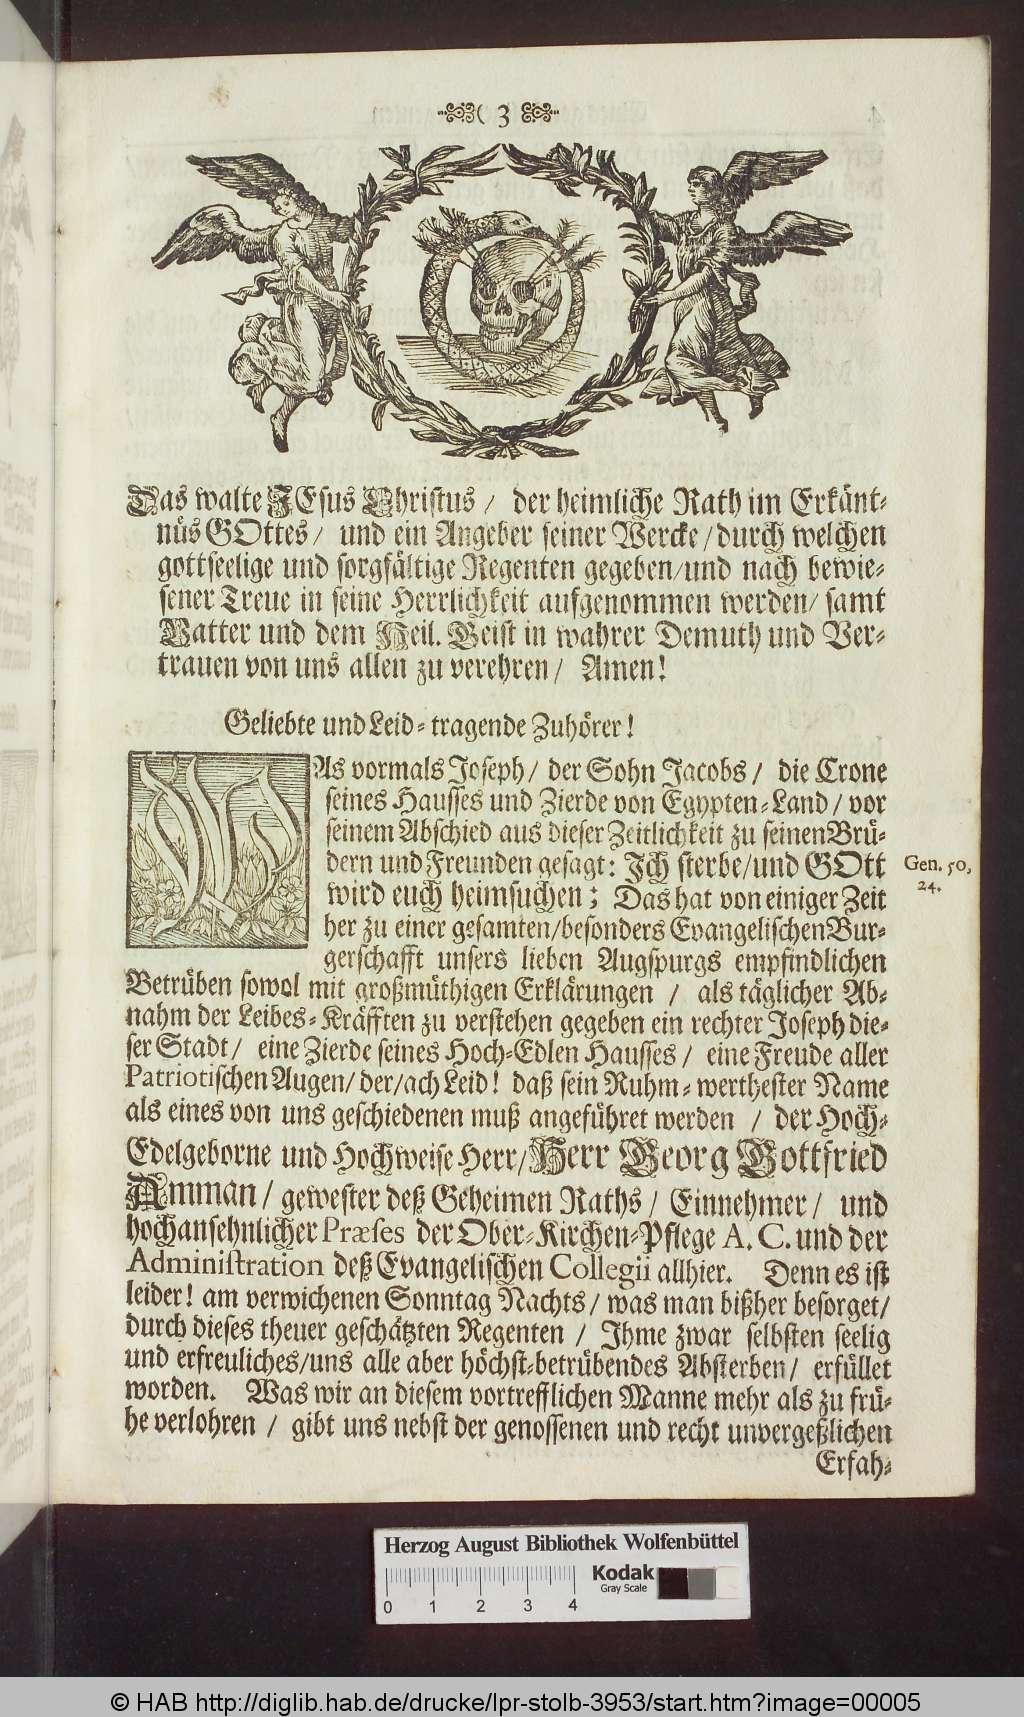 3
Das walte JEsus Christus / der heimliche Rath im Erkänt-
nüs GOttes / und ein Angeber seiner Wercke / durch welchen
gottseelige und sorgfältige Regenten gegeben / und nach bewie-
sener Treue in seine Herrlichkeit aufgenommen werden / samt
Vatter und dem Heil. Geist in wahrer Demuth und Ver-
trauen von uns allen zu verehren / Amen!
Geliebte und Leid-tragende Zuhörer!
WAs vormals Joseph / der Sohn Jacobs / die Crone
seines Hausses und Zierde von Egypten-Land / vor
seinem Abschied aus dieser Zeitlichkeit zu seinen Brü-
dern und Freunden gesagt: Jch sterbe / und GOtt
Gen. 50,
24.
wird euch heimsuchen; Das hat von einiger Zeit
her zu einer gesamten / besonders Evangelischen Bur-
gerschafft unsers lieben Augspurgs empfindlichen
Betrüben sowol mit großmüthigen Erklärungen / als täglicher Ab-
nahm der Leibes-Kräfften zu verstehen gegeben ein rechter Joseph die-
ser Stadt / eine Zierde seines Hoch-Edlen Hausses / eine Freude aller
Patriotischen Augen / der / ach Leid! daß sein Ruhm-werthester Name
als eines von uns geschiedenen muß angeführet werden / der Hoch-
Edelgeborne und Hochweise Herr / Herr Georg Gottfried
Amman / gewester deß Geheimen Raths / Einnehmer / und
hochansehnlicher Præses der Ober-Kirchen-Pflege A. C. und der
Administration deß Evangelischen Collegii allhier. Denn es ist
leider! am verwichenen Sonntag Nachts / was man bißher besorget /
durch dieses theuer geschätzten Regenten / Jhme zwar selbsten seelig
und erfreuliches / uns alle aber höchst-betrübendes Absterben / erfüllet
worden. Was wir an diesem vortrefflichen Manne mehr als zu frü-
he verlohren / gibt uns nebst der genossenen und recht unvergeßlichen
Erfah-
Herzog August Bibliothek Wolfenbüttel
Kodak
Gray Scale
0 1 2 3 4
© HAB http://diglib.hab.de/drucke/lpr-stolb-3953/start.htm?image=00005